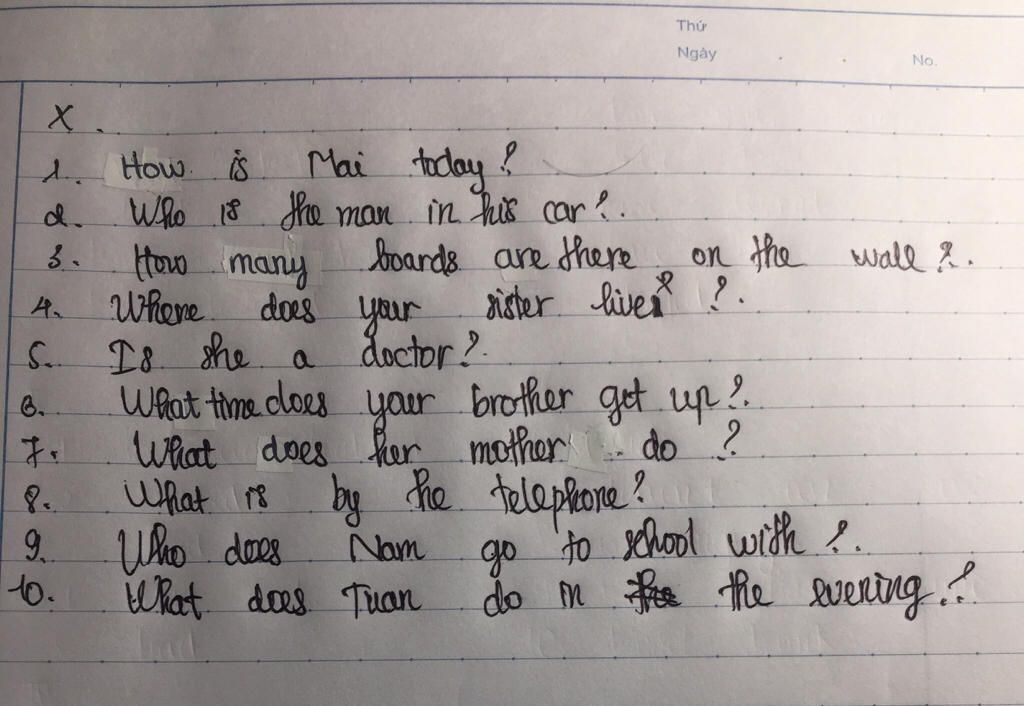 Thứ
Ngày . . No.
X.
1. How is Mai today?
2. Who is the man in his car?.
3. How many boards are there on the wall?.
4. Where does your sister live ?.
5. Is she a doctor?.
6. What time does your brother get up?.
7. What does her mother do ?
8. What is by the telephone?
9. Who does Nam go to school with ?.
10. What does Tuan do in the evening?